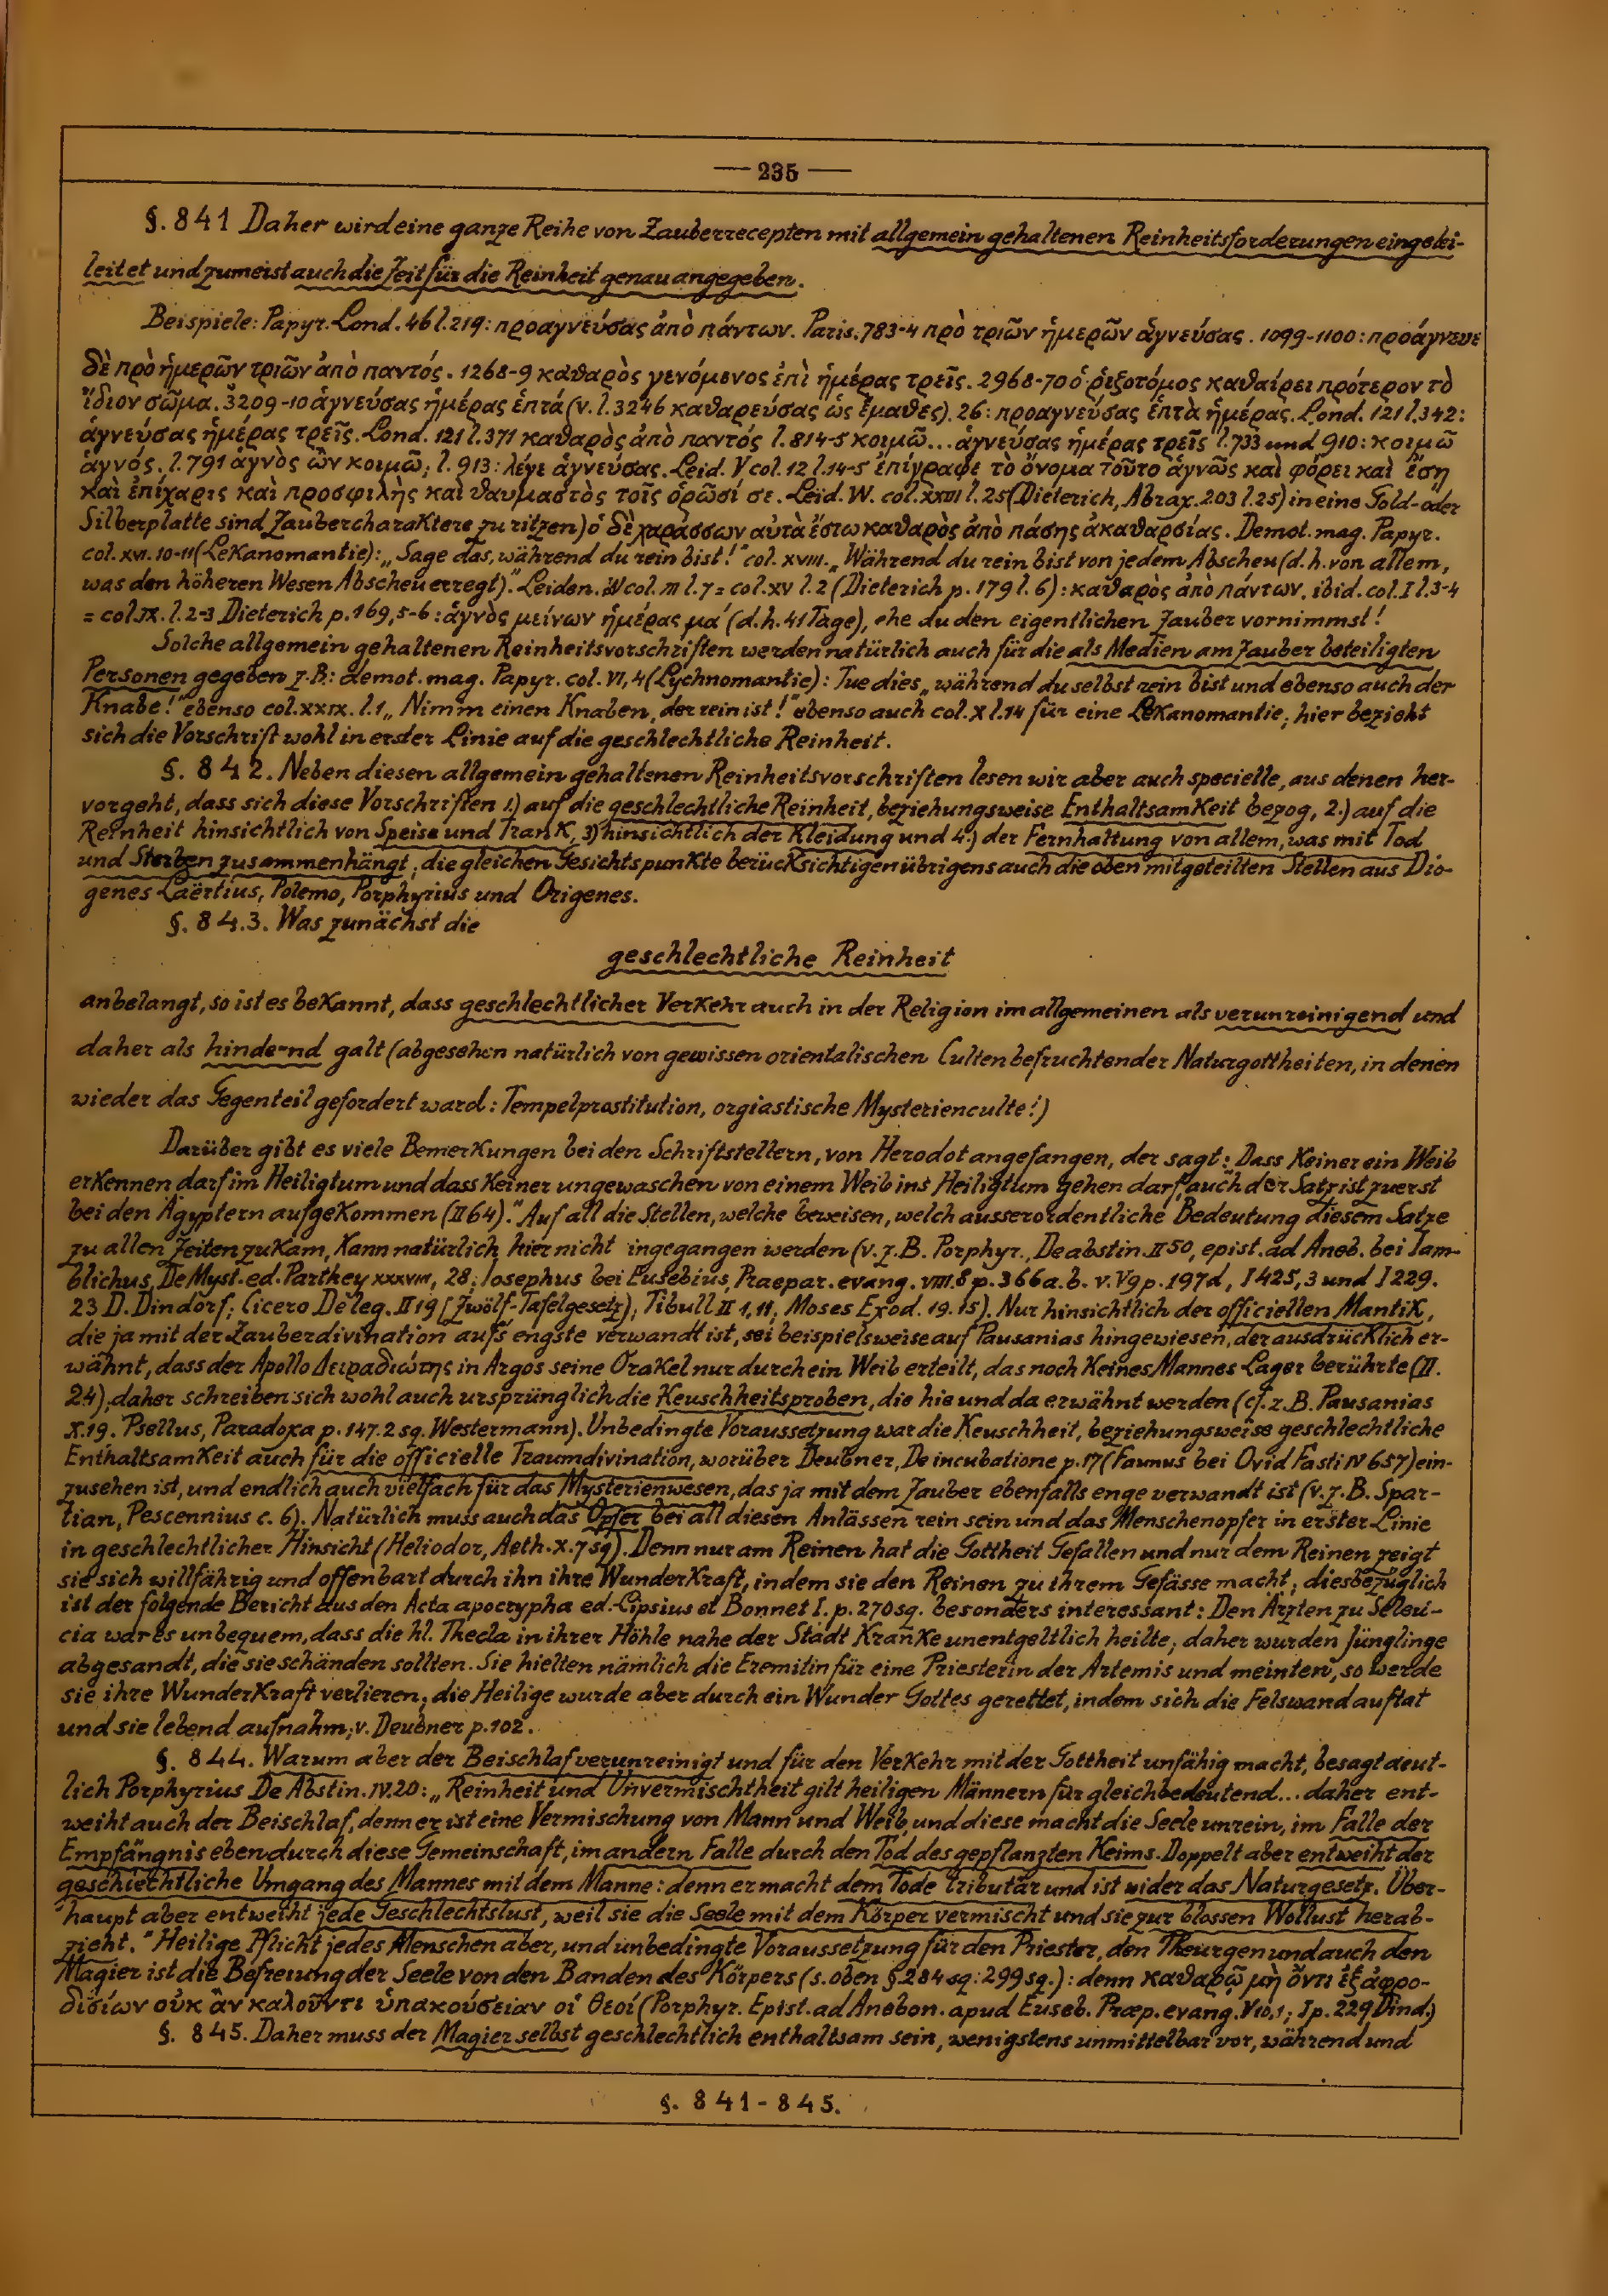 — 235 —
§. 841 Daher wird eine ganze Reihe von Zauberrecepten mit allgemein gehaltenen Reinheitsforderungen eingelei-
leitet und zumeist auch die Zeit für die Reinheit genau angegeben.
Beispiele: Papyr. Lond. 46 l. 219: προαγνεύσας ἀπὸ πάντων. Paris. 783-4 πρὸ τριῶν ἡμερῶν ἁγνεύσας. 1099-1100: προάγνευε
δὲ πρὸ ἡμερῶν τριῶν ἀπὸ παντός. 1268-9 καθαρὸς γενόμενος ἐπὶ ἡμέρας τρεῖς. 2968-70 ὁ ῥιζοτόμος καθαίρει πρότερον τὸ
ἴδιον σῶμα. 3209-10 ἁγνεύσας ἡμέρας ἑπτά (v. l. 3246 καθαρεύσας ὡς ἔμαθες). 26: προαγνεύσας ἑπτὰ ἡμέρας. Lond. 121 l. 342:
ἁγνεύσας ἡμέρας τρεῖς. Lond. 121 l. 371 καθαρὸς ἀπὸ παντός l. 814-5 κοιμῶ... ἁγνεύσας ἡμέρας τρεῖς l. 733 und 910: κοιμῶ
ἁγνός. l. 791 ἁγνὸς ὢν κοιμῶ; l. 913: λέγε ἁγνεύσας. Leid. V col. 12 l. 14-5 ἐπίγραφε τὸ ὄνομα τοῦτο ἁγνῶς καὶ φόρει καὶ ἔσῃ
καὶ ἐπίχαρις καὶ προσφιλὴς καὶ θαυμαστὸς τοῖς ὁρῶσί σε. Leid. W. col. XXIII l. 25 (Dieterich, Abrax. 203 l. 25) in eine Gold- oder
Silberplatte sind Zaubercharaktere zu ritzen) ὁ δὲ χαράσσων αὐτὰ ἔστω καθαρὸς ἀπὸ πάσης ἀκαθαρσίας. Demot. mag. Papyr.
col. XVI. 10-11 (Lekanomantie): „Sage das, während du rein bist!" col. XVIII. „Während du rein bist von jedem Abscheu (d.h. von allem,
was den höheren Wesen Abscheu erregt)". Leiden. W col. III l. 7 = col. XV l. 2 (Dieterich p. 179 l. 6): καθαρὸς ἀπὸ πάντων. ibid. col. I l. 3-4
= col. IX. l. 2-3 Dieterich p. 169, 5-6: ἁγνὸς μείνων ἡμέρας μά (d.h. 41 Tage), ehe du den eigentlichen Zauber vornimmst!
Solche allgemein gehaltenen Reinheitsvorschriften werden natürlich auch für die als Medien am Zauber beteiligten
Personen gegeben z.B: demot. mag. Papyr. col. VI, 4 (Lychnomantie): Tue dies „während du selbst rein bist und ebenso auch der
Knabe!" ebenso col. XXIX. l. 1 „Nimm einen Knaben, der rein ist!" ebenso auch col. X l. 14 für eine Lekanomantie; hier bezieht
sich die Vorschrift wohl in erster Linie auf die geschlechtliche Reinheit.
§. 842. Neben diesen allgemein gehaltenen Reinheitsvorschriften lesen wir aber auch specielle, aus denen her-
vorgeht, dass sich diese Vorschriften 1.) auf die geschlechtliche Reinheit, beziehungsweise Enthaltsamkeit bezog, 2.) auf die
Reinheit hinsichtlich von Speise und Trank, 3) hinsichtlich der Kleidung und 4.) der Fernhaltung von allem, was mit Tod
und Sterben zusammenhängt; die gleichen Gesichtspunkte berücksichtigen übrigens auch die oben mitgeteilten Stellen aus Dio-
genes Laërtius, Polemo, Porphyrius und Origenes.
§. 843. Was zunächst die
geschlechtliche Reinheit
anbelangt, so ist es bekannt, dass geschlechtlicher Verkehr auch in der Religion im allgemeinen als verunreinigend und
daher als hindernd galt (abgesehen natürlich von gewissen orientalischen Culten befruchtender Naturgottheiten, in denen
wieder das Gegenteil gefordert ward: Tempelprostitution, orgiastische Mysterienculte!)
Darüber gibt es viele Bemerkungen bei den Schriftstellern, von Herodot angefangen, der sagt: Dass keiner ein Weib
erkennen darf im Heiligtum und dass keiner ungewaschen von einem Weib ins Heiligtum gehen darf, auch der Satz ist zuerst
bei den Ägyptern aufgekommen (II 64)." Auf all die Stellen, welche beweisen, welch ausserordentliche Bedeutung diesem Satze
zu allen Zeiten zukam, kann natürlich hier nicht ingegangen werden (v. z. B. Porphyr. De abstin. II 50, epist. ad Aneb. bei Iam-
blichus, De Myst. ed. Parthey XXXVIII, 28; Iosephus bei Eusebius, Praepar. evang. VIII. 8 p. 366 a. b. v. V 9 p. 197 d, I 425, 3 und I 229.
23 D. Dindorf; Cicero De leg. II 19 [Zwölf-Tafelgesetz); Tibull II 1, 11, Moses Exod. 19. 15). Nur hinsichtlich der officiellen Mantik,
die ja mit der Zauberdivination aufs engste verwandt ist, sei beispielsweise auf Pausanias hingewiesen, der ausdrücklich er-
wähnt, dass der Apollo Δειραδιώτης in Argos seine Orakel nur durch ein Weib erteilt, das noch keines Mannes Lager berührte (II.
24); daher schreiben sich wohl auch ursprünglich die Keuschheitsproben, die hie und da erwähnt werden (cf. z. B. Pausanias
X. 19. Psellus, Paradoxa p. 147. 2 sq. Westermann). Unbedingte Voraussetzung war die Keuschheit, beziehungsweise geschlechtliche
Enthaltsamkeit auch für die officielle Traumdivination, worüber Deubner, De incubatione p. 17 (Faunus bei Ovid Fasti IV 657) ein-
zusehen ist, und endlich auch vielfach für das Mysterienwesen, das ja mit dem Zauber ebenfalls enge verwandt ist (v. z. B. Spar-
tian, Pescennius c. 6). Natürlich muss auch das Opfer bei all diesen Anlässen rein sein und das Menschenopfer in erster Linie
in geschlechtlicher Hinsicht (Heliodor, Aeth. X. 7 sq). Denn nur am Reinen hat die Gottheit Gefallen und nur dem Reinen zeigt
sie sich willfährig und offenbart durch ihn ihre Wunderkraft, indem sie den Reinen zu ihrem Gefässe macht; diesbezüglich
ist der folgende Bericht aus den Acta apocrypha ed. Lipsius et Bonnet I. p. 270 sq. besonders interessant: Den Ärzten zu Seleu-
cia war es unbequem, dass die hl. Thecla in ihrer Höhle nahe der Stadt Kranke unentgeltlich heilte; daher wurden Jünglinge
abgesandt, die sie schänden sollten. Sie hielten nämlich die Eremitin für eine Priesterin der Artemis und meinten, so werde
sie ihre Wunderkraft verlieren; die Heilige wurde aber durch ein Wunder Gottes gerettet, indem sich die Felswand auftat
und sie lebend aufnahm; v. Deubner p. 102.
§. 844. Warum aber der Beischlaf verunreinigt und für den Verkehr mit der Gottheit unfähig macht, besagt deut-
lich Porphyrius De Abstin. IV. 20: „Reinheit und Unvermischtheit gilt heiligen Männern für gleichbedeutend... daher ent-
weiht auch der Beischlaf, denn er ist eine Vermischung von Mann und Weib, und diese macht die Seele unrein, im Falle der
Empfängnis eben durch diese Gemeinschaft, im andern Falle durch den Tod des gepflanzten Keims. Doppelt aber entweiht der
geschlechtliche Umgang des Mannes mit dem Manne: denn er macht dem Tode tributär und ist wider das Naturgesetz. Über-
haupt aber entweiht jede Geschlechtslust, weil sie die Seele mit dem Körper vermischt und sie zur blossen Wollust herab-
zieht." Heilige Pflicht jedes Menschen aber, und unbedingte Voraussetzung für den Priester, den Theurgen und auch den
Magier ist die Befreiung der Seele von den Banden des Körpers (s. oben § 284 sq: 299 sq.): denn καθαρῷ μὴ ὄντι ἐξ ἀφρο-
δισίων οὐκ ἂν καλοῦντι ὑπακούσειαν οἱ θεοί (Porphyr. Epist. ad Anebon. apud Euseb. Præp. evang. V 10, 1; I p. 229 Dind.)
§. 845. Daher muss der Magier selbst geschlechtlich enthaltsam sein, wenigstens unmittelbar vor, während und
§. 841 - 845.